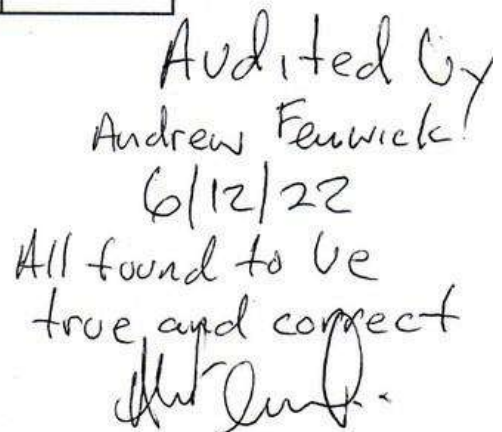 Audited by
Andrew Fenwick
6/12/22
All found to be
true and correct